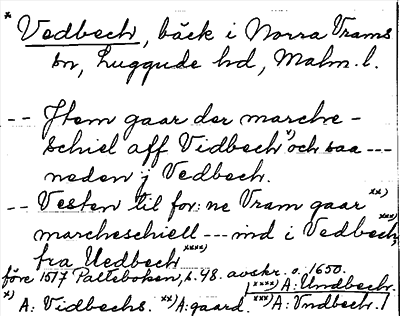 * Vedbech, bäck i Norra Vrams
sn, Luggude hd, Malm. l.
-- Item gaar der marche-
schiel aff Vidbech *) och saa ---
neden j Vedbech.
-- Vesten til for:ne Vram gaar **)
marcheschiell --- ind i Vedbech, ***)
fra Uedbech ****)
före 1517 Palteboken, s. 48. avskr. o. 1650.
*) A: Vidbechs. **) A: gaard. ***) A: Vndbechr.
****) A: Undbechr.